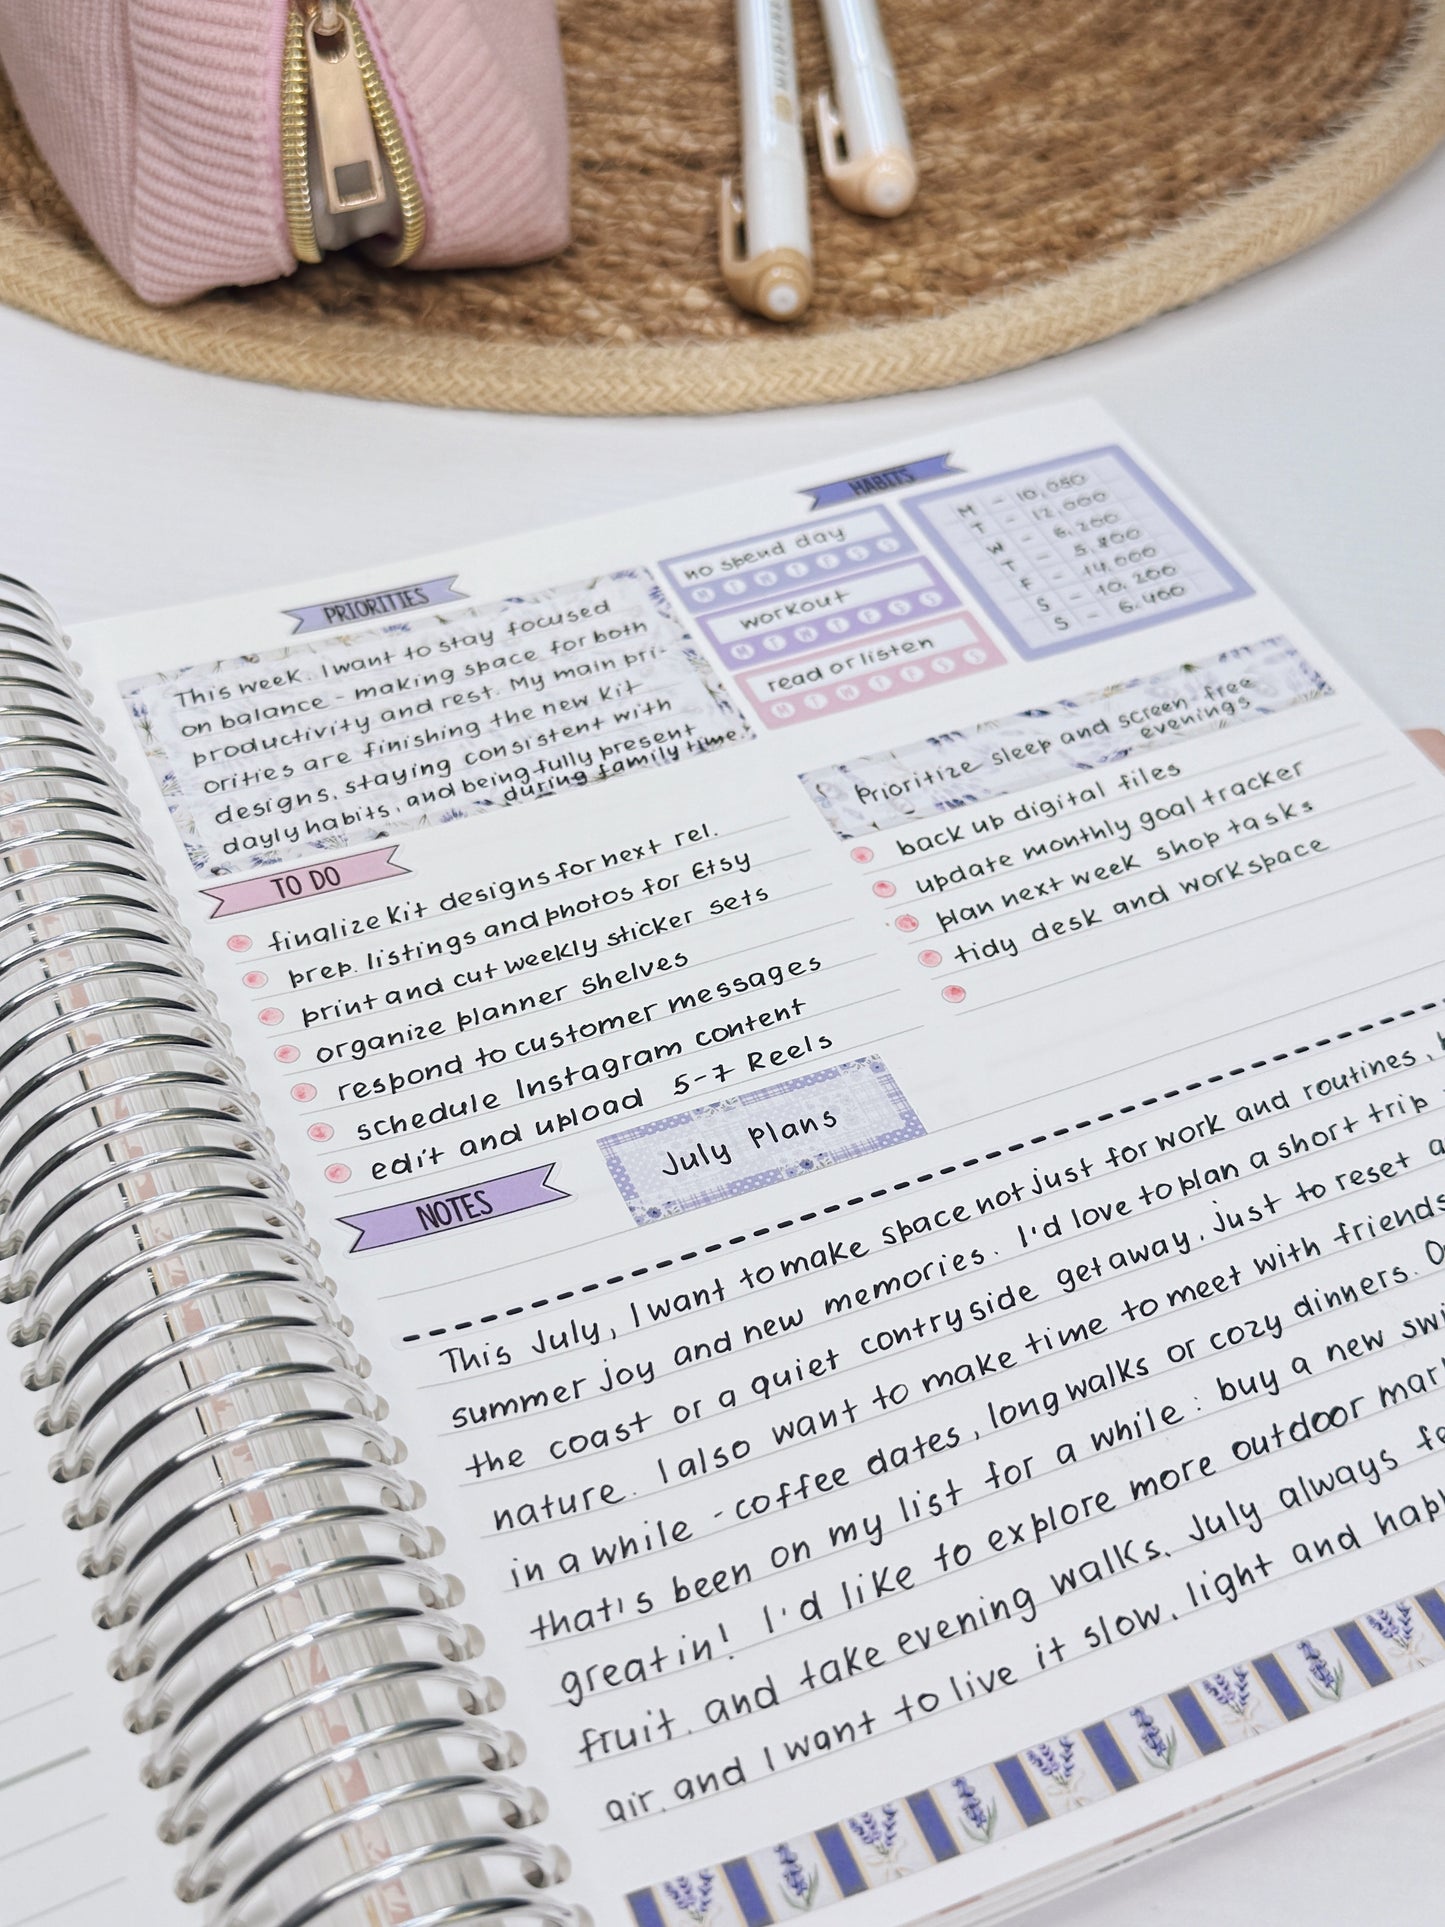 PRIORITIES
This week, I want to stay focused
on balance - making space for both
productivity and rest. My main pri-
orities are finishing the new kit
designs, staying consistent with
dayly habits, and being fully present
during family time.
HABITS
no spend day
M T W T F S S
workout
M T W T F S S
read or listen
M T W T F S S
M - 10,050
T - 12,000
W - 8,200
T - 5,800
F - 14,000
S - 10,200
S - 6,400
TO DO
finalize kit designs for next rel.
prep. listings and photos for Etsy
print and cut weekly sticker sets
organize planner shelves
respond to customer messages
schedule Instagram content
edit and upload 5-7 Reels
Prioritize sleep and screen free
evenings
back up digital files
update monthly goal tracker
plan next week shop tasks
tidy desk and workspace
NOTES
July plans
This July, I want to make space not just for work and routines,
summer joy and new memories. I'd love to plan a short trip
the coast or a quiet contryside getaway, just to reset
nature. I also want to make time to meet with friends
in a while - coffee dates, long walks or cozy dinners.
that's been on my list for a while: buy a new
great in! I'd like to explore more outdoor
fruit, and take evening walks. July always
air, and I want to live it slow, light and